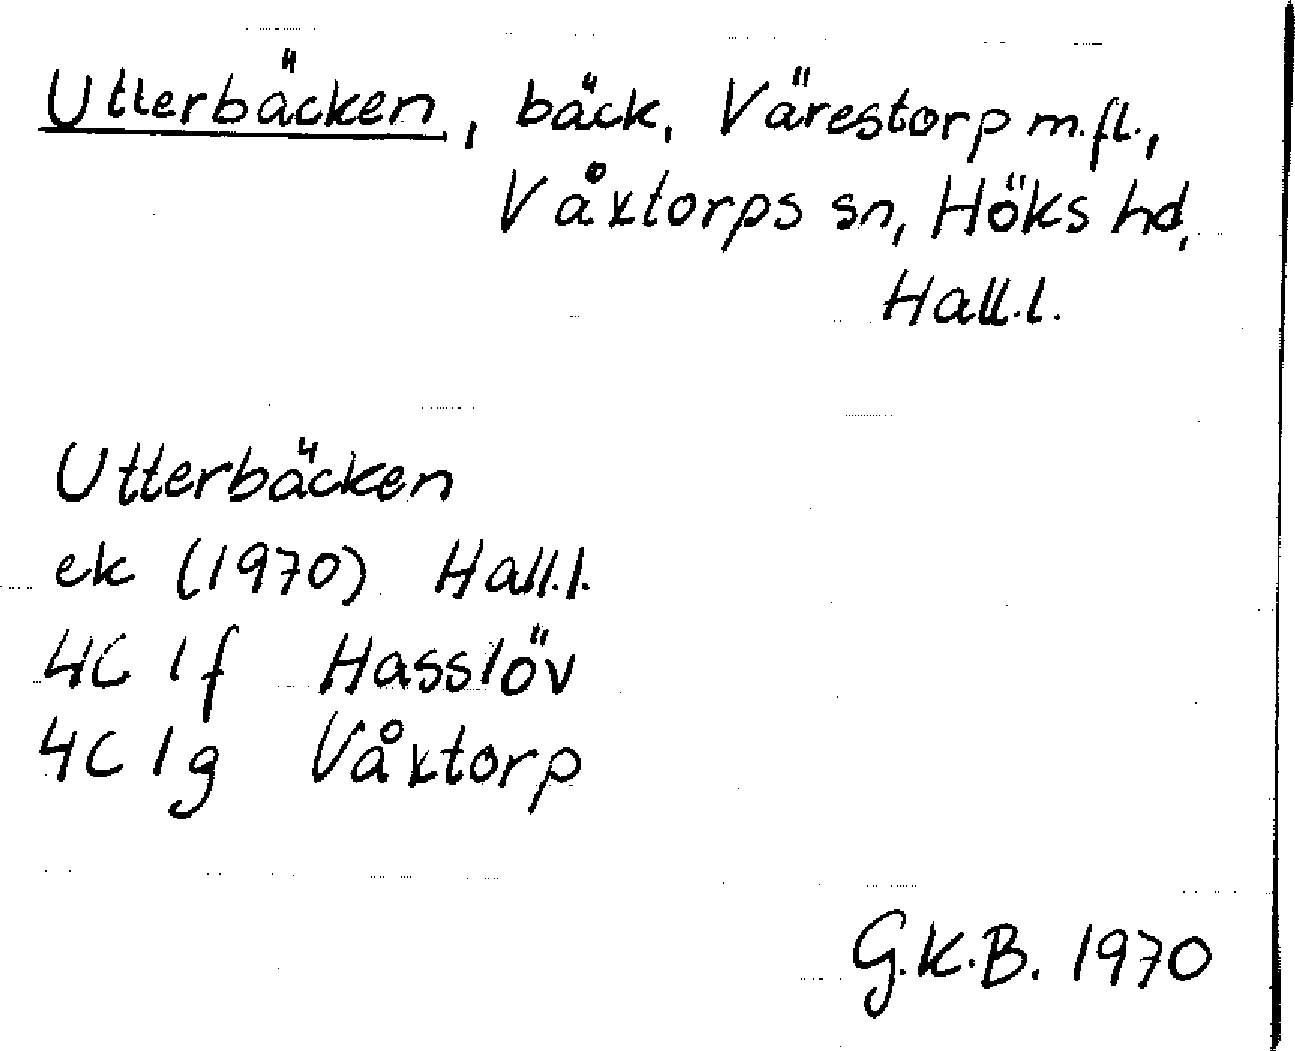 Utterbäcken, bäck, Värestorp m.fl.,
Våxtorps sn, Höks hd,
Hall.l.
Utterbäcken
ek (1970) Hall.l.
4C 1f Hasslöv
4C 1g Våxtorp
G.K.B. 1970